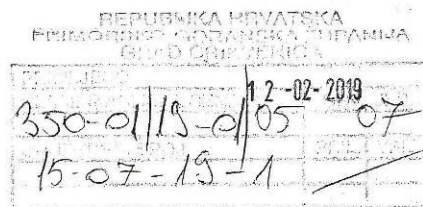 REPUBLIKA HRVATSKA
PRIMORSKO GORANSKA ŽUPANIJA
GRAD CRIKVENICA
12-02-2019
350-01/19-01/05 07
15-07-19-1